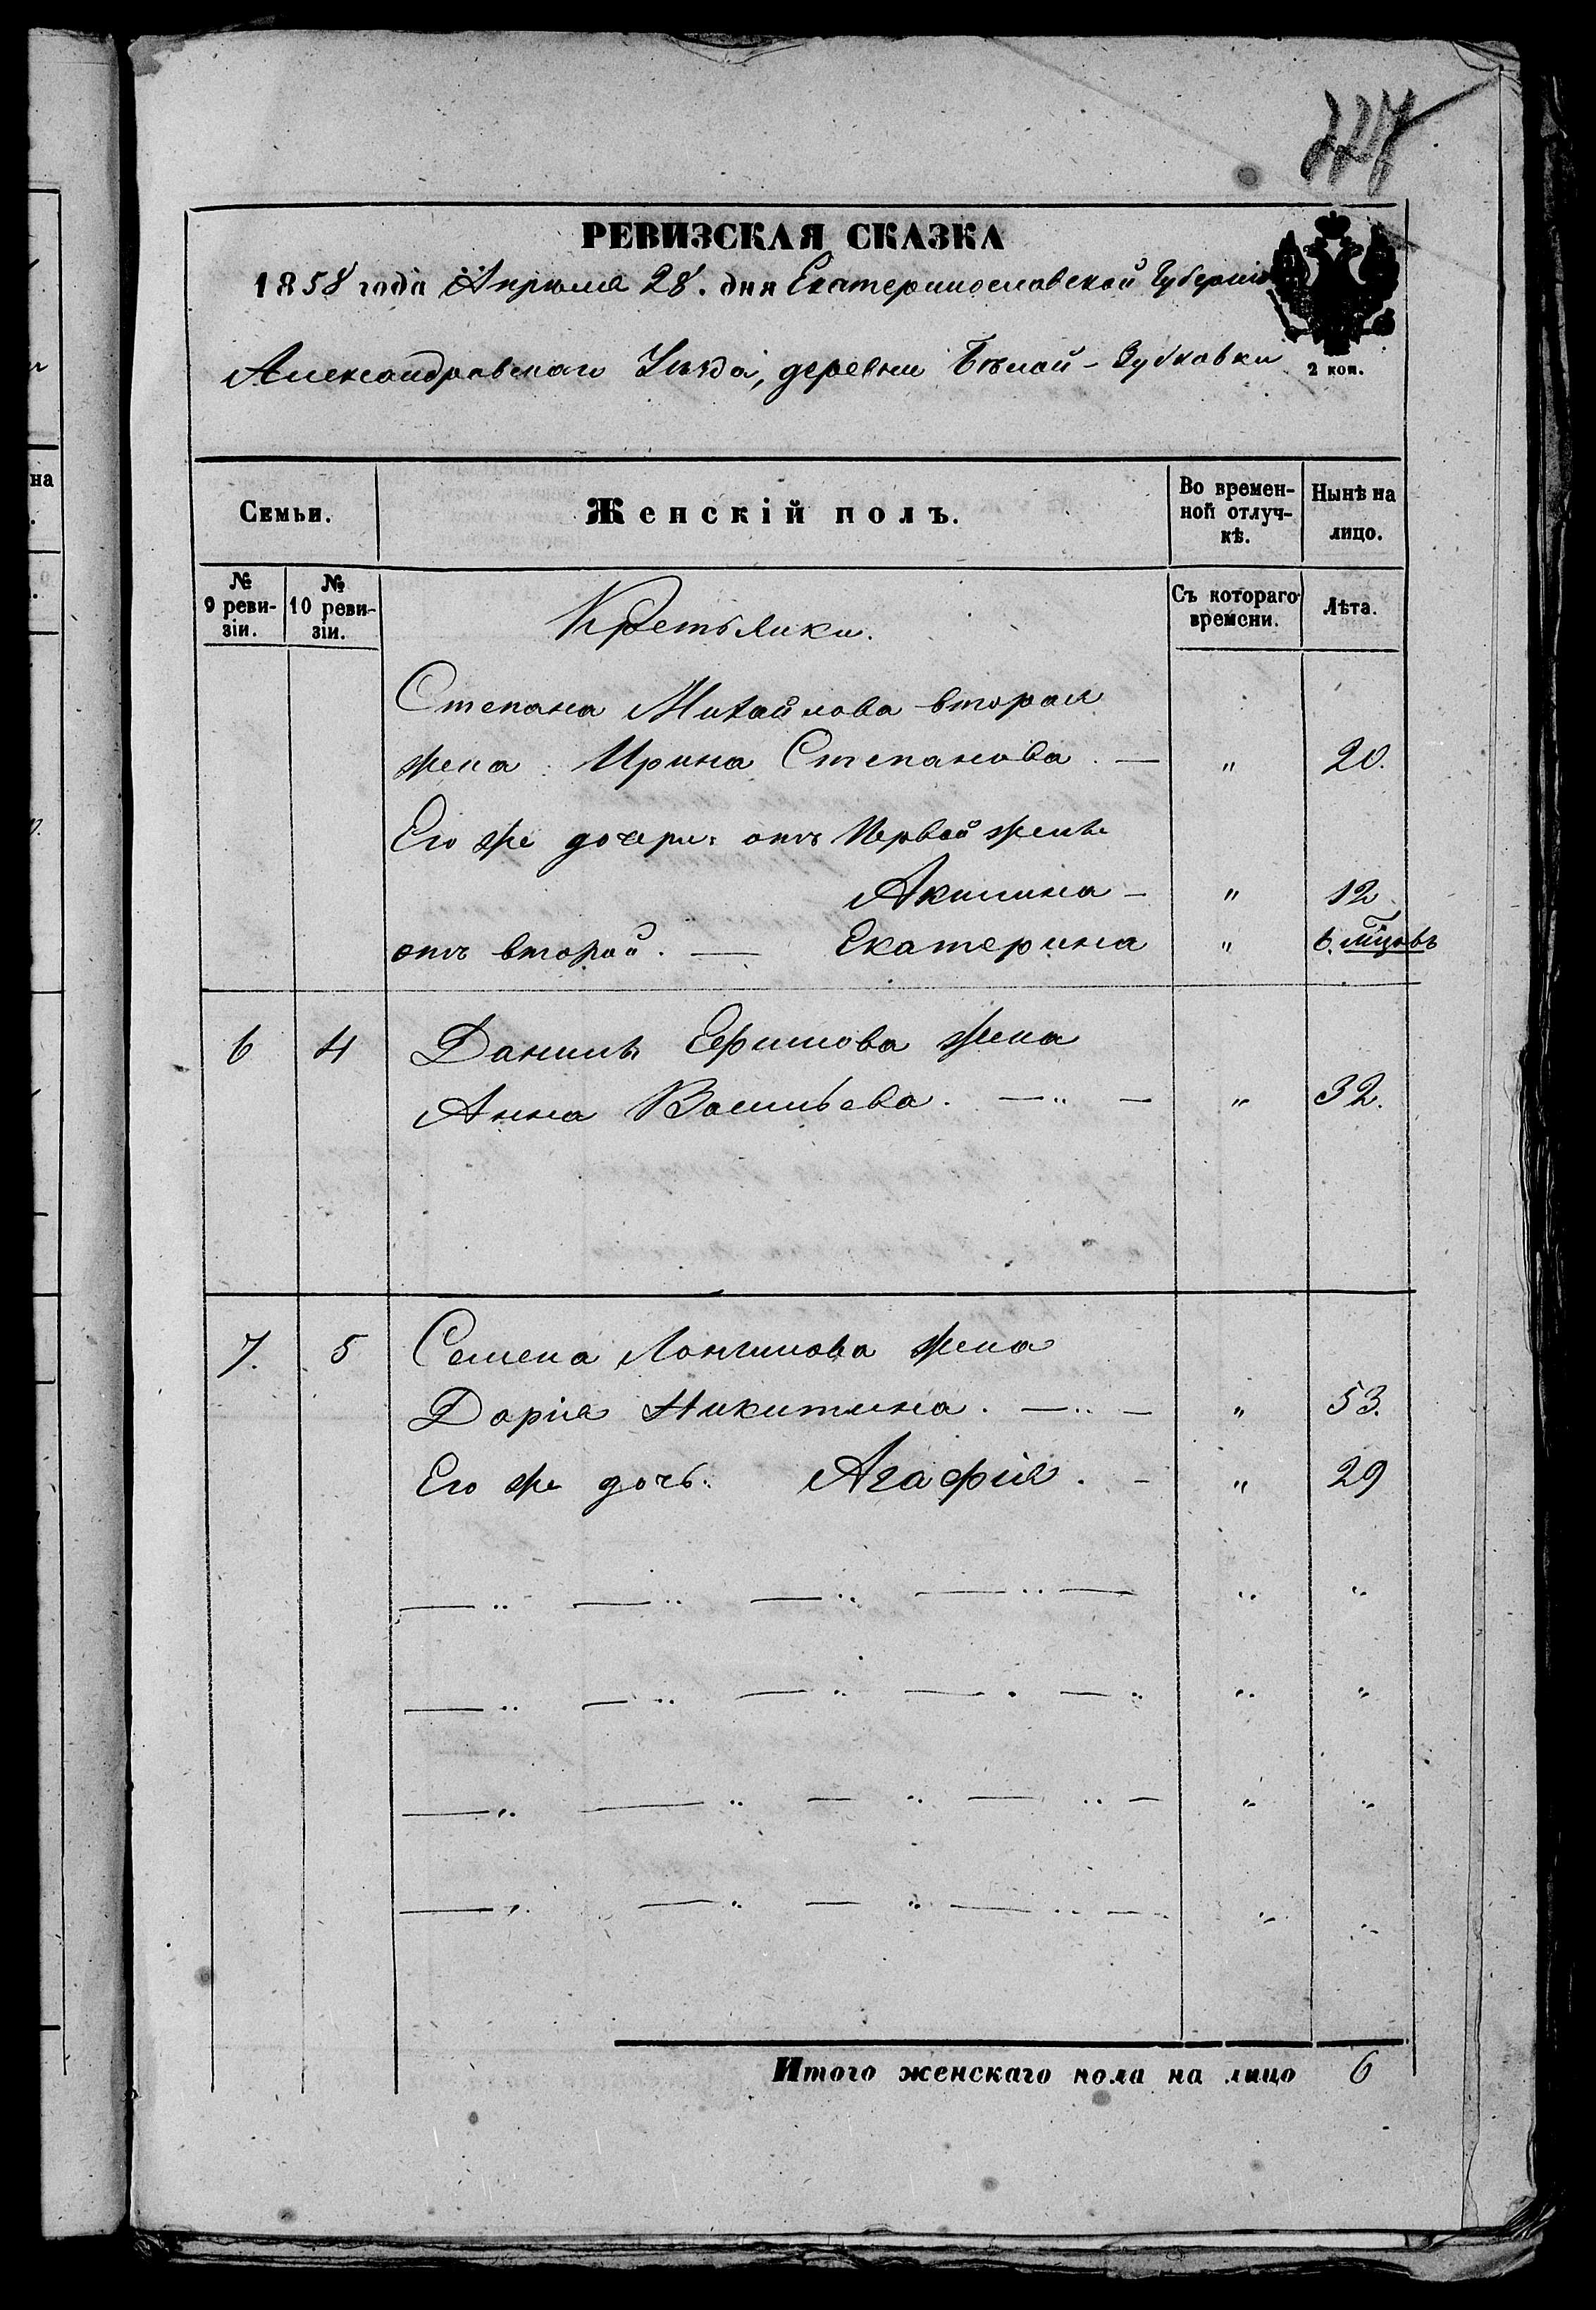 227
РЕВИЗСКАЯ СКАЗКА
1858 года Апрѣля 28. дня Екатеринославской Губерніи
Александровскаго Уѣзда, деревни Бѣлой-Зубковки
2 коп.
Семьи.
Женскій полъ.
Во времен-
ной отлуч-
кѣ.
Нынѣ на
лицо.
№
9 реви-
зіи.
№
10 реви-
зіи.
Крестьянки.
Съ котораго
времени.
Лѣта.
Степана Михайлова вторая
жена Ирина Степанова. — " 20.
Его же дочери: отъ Первой жены
Акилина — " 12.
отъ второй. — Екатерина " 6. мцовъ
6 4 Данилы Ефимова жена
Анна Васильева. — " — " 32.
7. 5 Семена Лонгинова жена
Дарія Никитина. — " — " 53.
Его же дочь. Агафія. — " 29
Итого женскаго пола на лицо 6
на